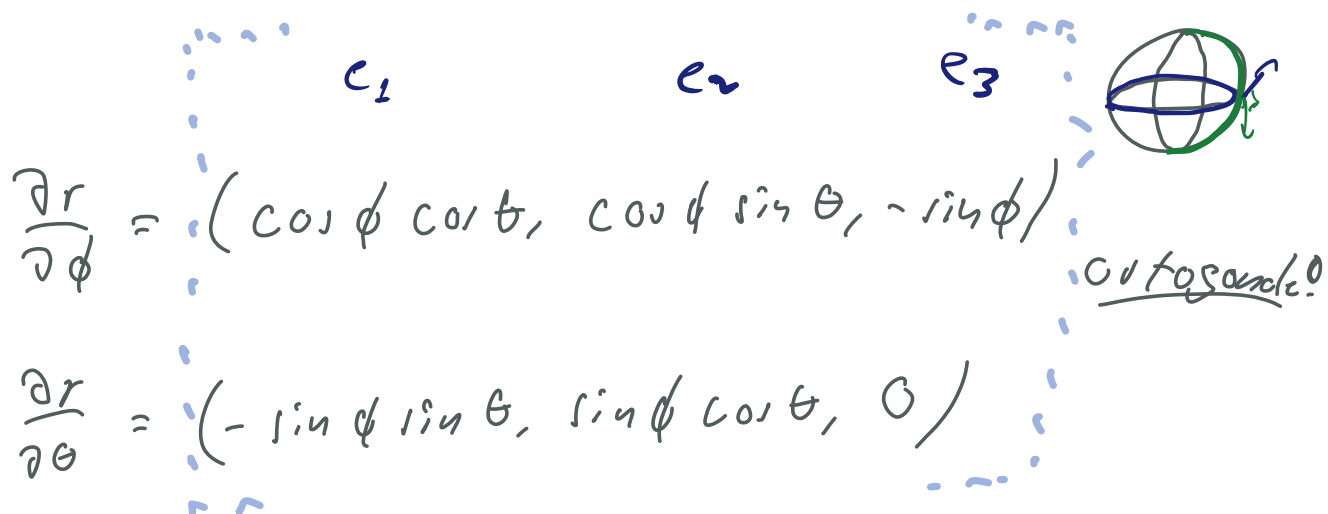 e₁ e₂ e₃
∂r/∂φ = (cos φ cos θ, cos φ sin θ, - sin φ)
ortogonale!
∂r/∂θ = (- sin φ sin θ, sin φ cos θ, 0)